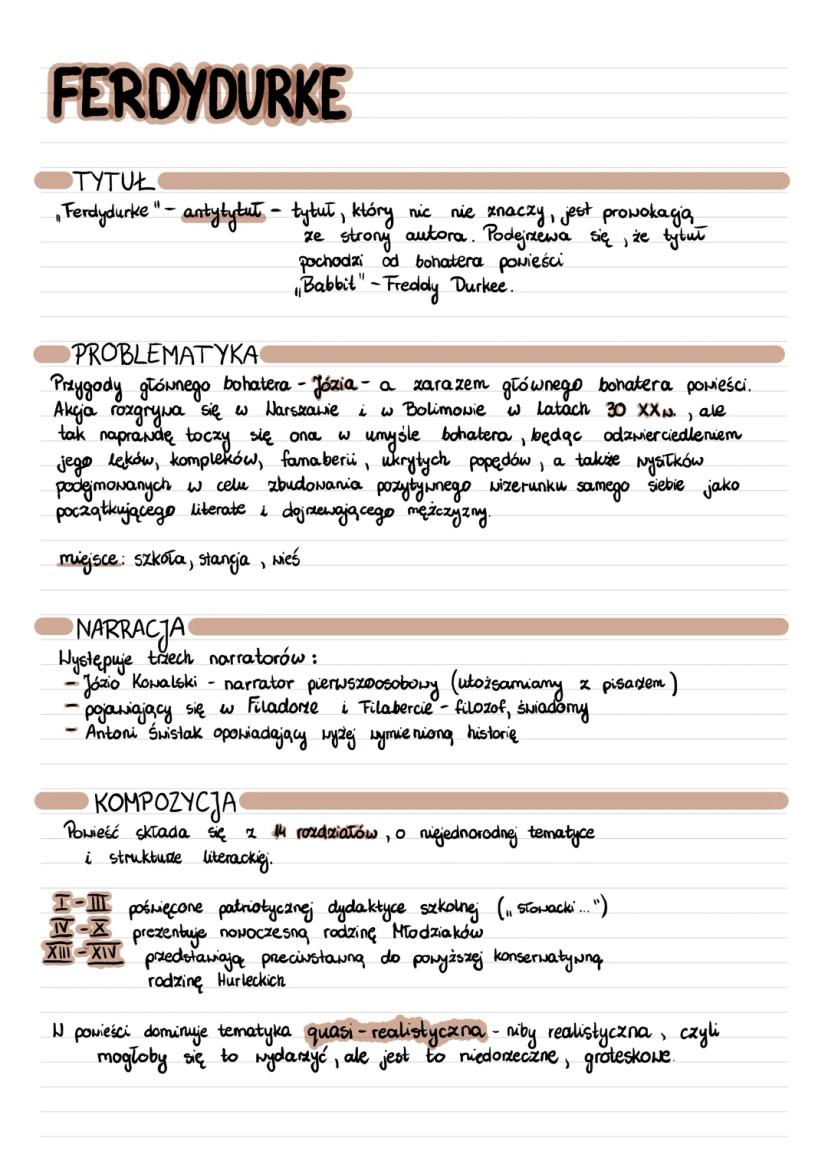 FERDYDURKE
TYTUŁ
„Ferdydurke" - antytytuł - tytuł, który nic nie znaczy, jest prowokacją
ze strony autora. Podejrzewa się, że tytuł
pochodzi od bohatera powieści
„Babbit" - Freddy Durkee.
PROBLEMATYKA
Przygody głównego bohatera - Józia - a zarazem głównego bohatera powieści.
Akcja rozgrywa się w Warszawie i w Bolimowie w latach 30 XXw., ale
tak naprawdę toczy się ona w umyśle bohatera, będąc odzwierciedleniem
jego lęków, kompleków, fanaberii, ukrytych popędów, a także wysiłków
podejmowanych w celu zbudowania pozytywnego wizerunku samego siebie jako
początkującego literate i dojrzewającego mężczyzny.
miejsce: szkoła, stancja, wieś
NARRACJA
Występuje trzech narratorów:
- Józio Kowalski - narrator pierwszoosobowy (utożsamiany z pisarzem)
- pojawiający się w Filadorze i Filabercie - filozof, świadomy
- Antoni Świstak opowiadający wyżej wymienioną historię
KOMPOZYCJA
Powieść składa się z 14 rozdziałów, o niejednorodnej tematyce
i strukturze literackiej.
I - III poświęcone patriotycznej dydaktyce szkolnej („Słowacki...")
IV - X prezentuje nowoczesną rodzinę Młodziaków
XIII - XIV przedstawiają preciwstawną do powyższej konserwatywną
rodzinę Hurleckich
W powieści dominuje tematyka quasi-realistyczna - niby realistyczna, czyli
mogłoby się to wydarzyć, ale jest to niedorzeczne, groteskowe.